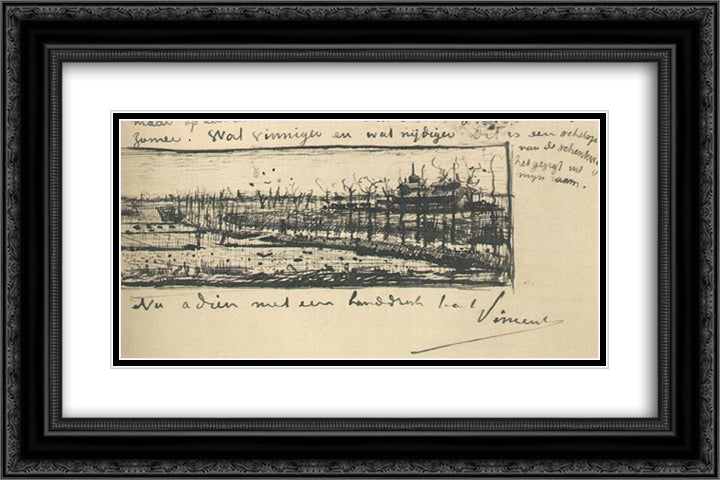 maar op een
zomer. Wat vinniger en wat nijdiger dit is een
van de
het gezigt uit
mijn raam.
Nu adieu met een handdruk
Vincent